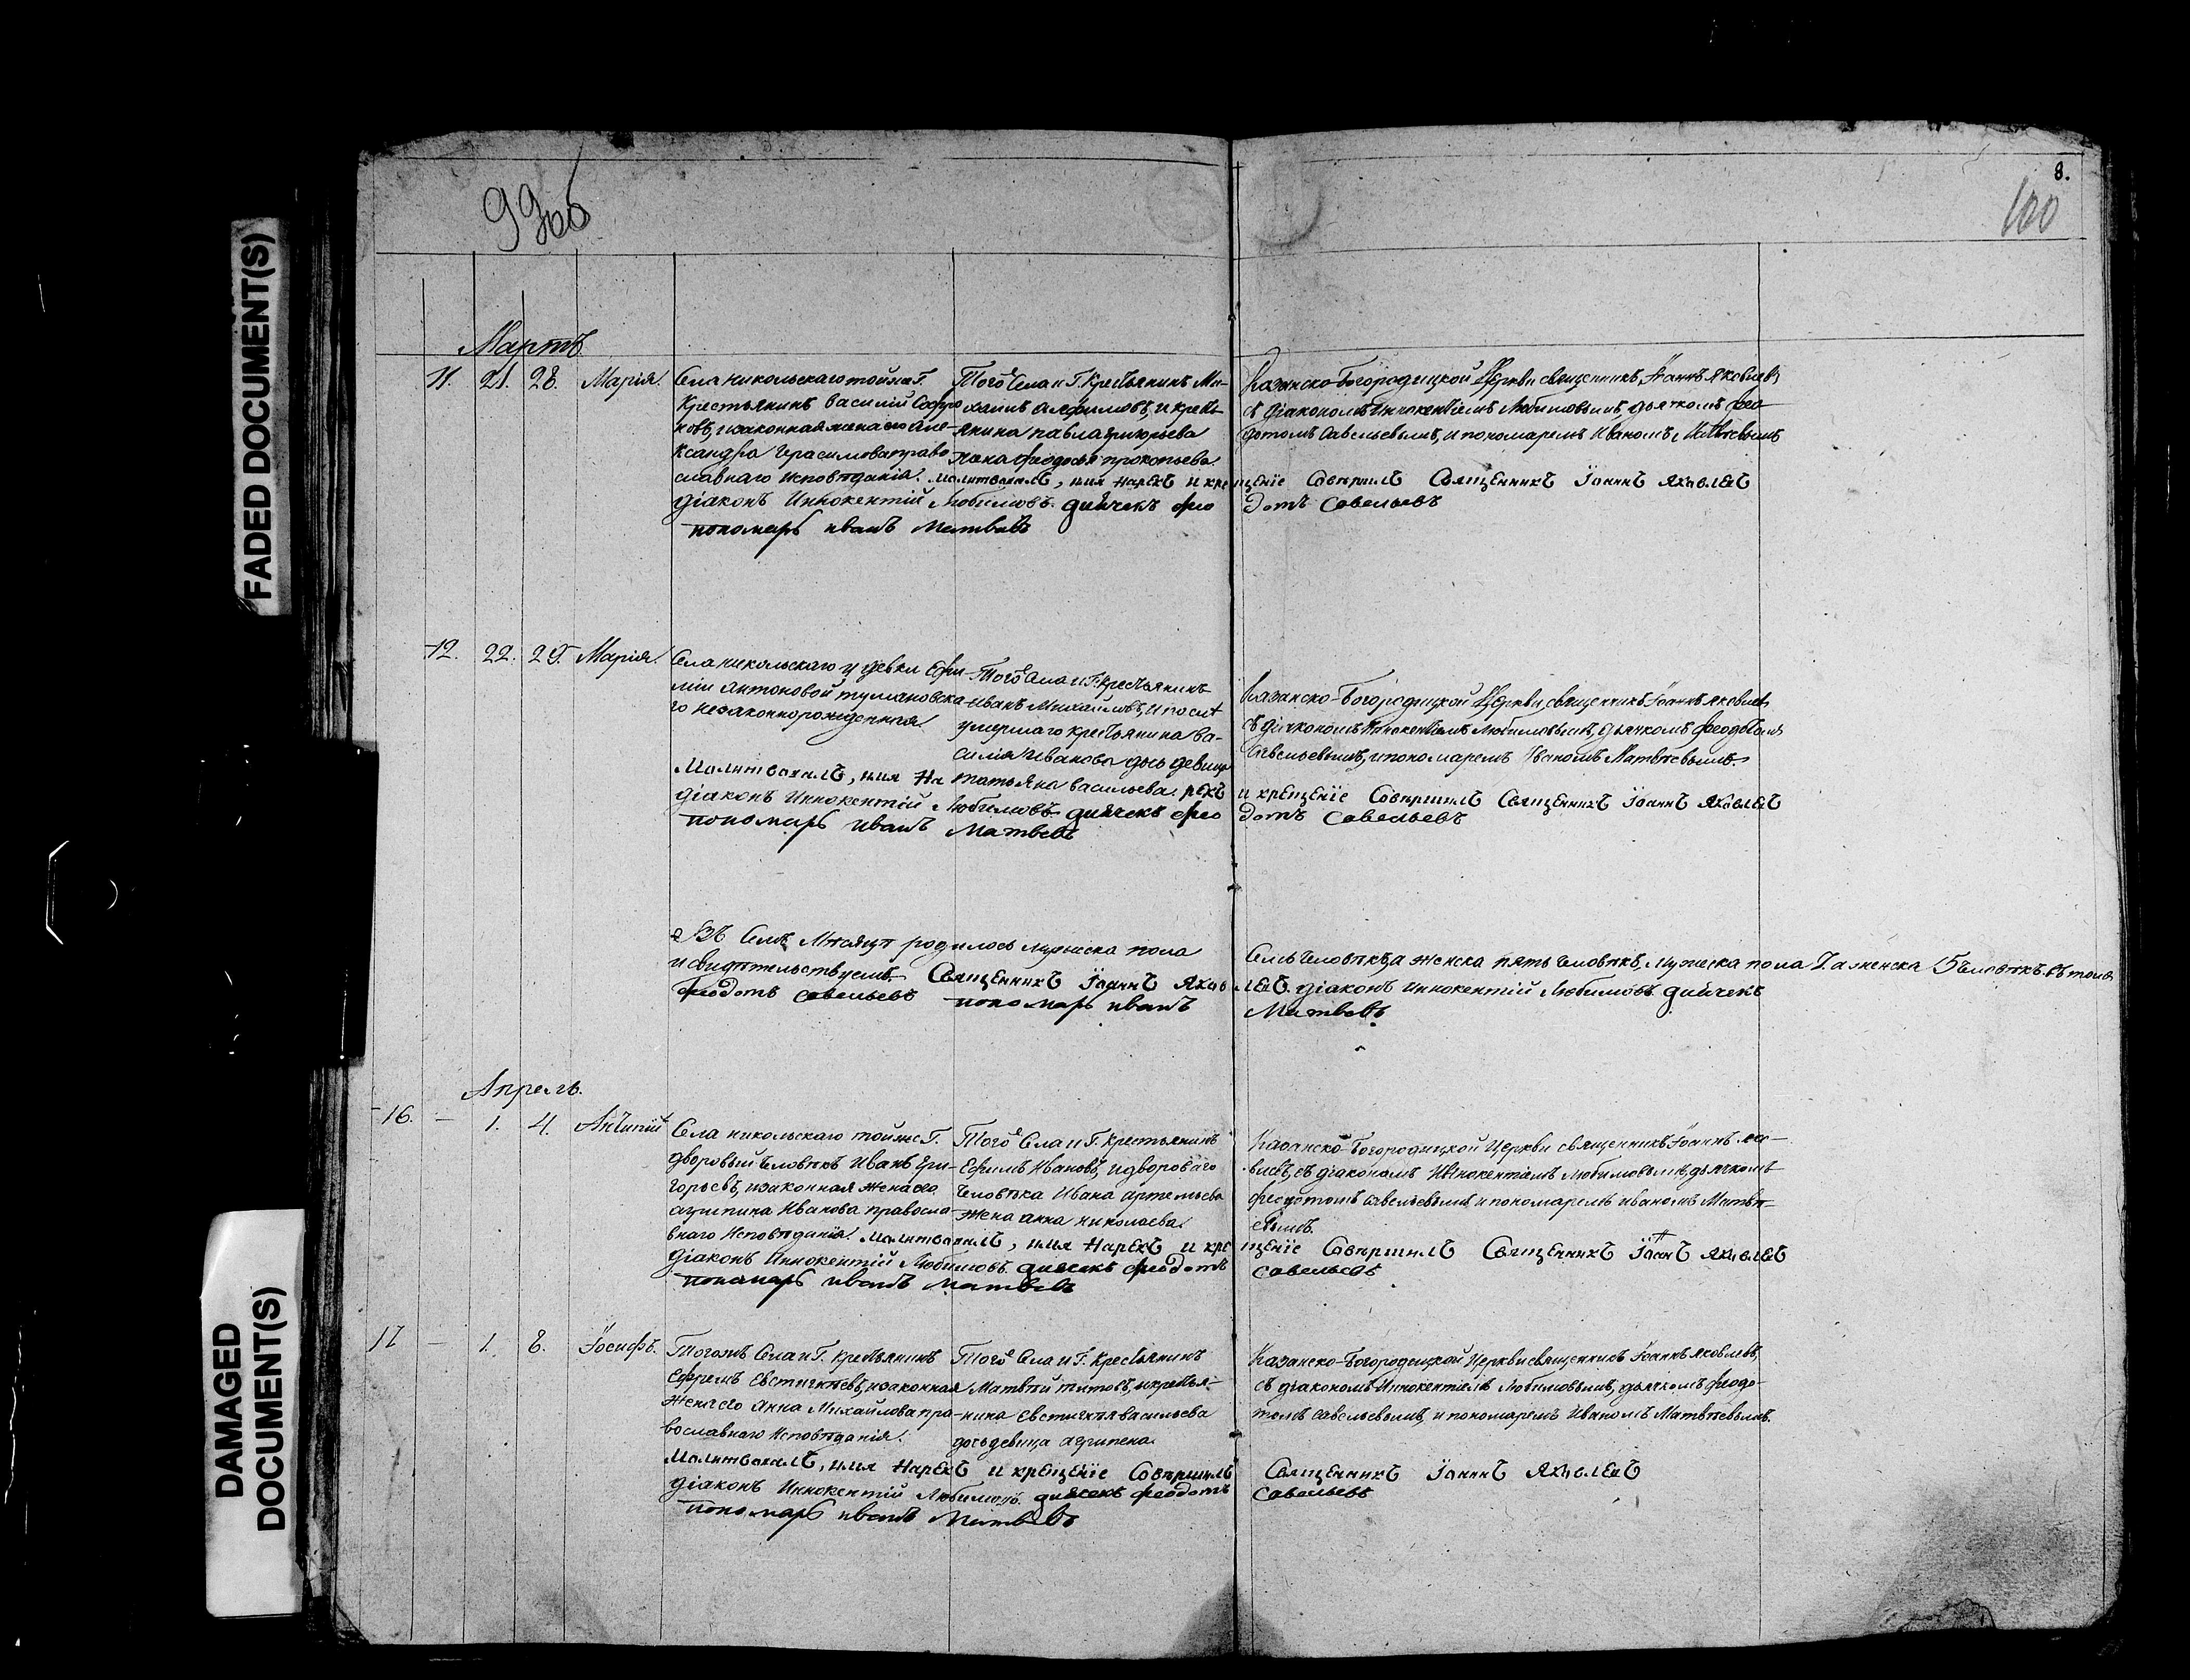 FADED DOCUMENT(S)
DAMAGED DOCUMENT(S)
99об
8.
100
Мартъ
11. 21. 28. Марія.
Села никольскаго тойже Г.
Крестьянинъ василій Софро
новъ, изаконная жена его Але
ксандра Герасимова право
славнаго исповѣданія.
Того Села и Г. Крестьянинъ Ми-
хаилъ алфимовъ, и кресть
янина павла григорьева
жена феодосья прокопьева.
Казанско-Богородицкой Церкви священникъ, Іоаннъ Яковлевъ
съ діакономъ Иннокентіемъ Любимовымъ, дьячкомъ фео
дотомъ Савельевымъ, и пономаремъ Иваномъ Матвѣевымъ
молитвовалъ, имя нарекъ и крещеніе Совѣршилъ Священникъ Іоаннъ Яковлевъ
діаконъ Иннокентій Любимовъ. дьячекъ феодотъ Савельевъ
пономарь иванъ Матвѣевъ
12. 22. 29. Марія.
Села никольскаго у девки Ефи
міи антоновой тумановска
го незаконнорожденная
Того Села и Г. Крестьянинъ
Иванъ Михайловъ, и послѣ
умершаго крестьянина Ва-
силія Иванова дочь девица
татьяна васильева.
Казанско-Богородицкой Церкви священникъ Іоаннъ яковлевъ
съ діакономъ Иннокентіемъ Любимовымъ, дьячкомъ феодотомъ
Савельевымъ, и пономаремъ Иваномъ Матвѣевымъ.
Молитвовалъ, имя нарекъ и крещеніе Совѣршилъ Священникъ Іоаннъ Яковлевъ
діаконъ Иннокентій Любимовъ. дьячекъ феодотъ Савельевъ
пономарь иванъ Матвѣевъ
Въ Семъ Мѣсяцѣ родилось мужеска пола Семь человѣкъ, а женска пять человѣкъ, мужеска пола 7. а женска 5 человѣкъ. въ томъ
и свидѣтельствуемъ. Священникъ Іоаннъ Яковлевъ. діаконъ Иннокентій Любимовъ. дьячекъ
феодотъ Савельевъ пономарь иванъ Матвѣевъ.
Апрель.
16. — 1. 4. Антипій
Села никольскаго тойже Г.
дворовый человѣкъ Иванъ Гри-
горьевъ, изаконная жена его
агрипина Иванова правосла
внаго исповѣданія.
Того Села и Г. Крестьянинъ
Ефимъ Ивановъ, и дворового
человѣка Ивана артемьева
жена анна николаева.
Казанско-Богородицкой Церкви священникъ Іоаннъ яко-
влевъ, съ діакономъ Иннокентіемъ Любимовымъ, дьячкомъ
феодотомъ савельевымъ, и пономаремъ иваномъ Матвѣ-
евымъ.
Молитвовалъ, имя Нарекъ и крещеніе Совѣршилъ Священникъ Іоаннъ Яковлевъ
діаконъ Иннокентій Любимовъ. дьячекъ феодотъ Савельевъ
пономарь иванъ Матвѣевъ
17 — 1. 8. Іосифъ.
Тогожъ Села и Г. крестьянинъ
Ефремъ Евстигнѣевъ, изаконная
жена его Анна Михайлова пра-
вославнаго исповѣданія.
Того Села и Г. Крестьянинъ
Матвѣй титовъ, и крестья-
нина Евстигнѣя васильева
дочь девица агрипена.
Казанско-Богородицкой Церкви священникъ Іоаннъ яковлевъ,
съ діакономъ Иннокентіемъ Любимовымъ, дьячкомъ феодо-
томъ савельевымъ, и пономаремъ Иваномъ Матвѣевымъ.
Молитвовалъ, имя Нарекъ и крещеніе Совѣршилъ Священникъ Іоаннъ Яковлевъ
діаконъ Иннокентій Любимовъ. дьячекъ феодотъ Савельевъ
пономарь иванъ Матвѣевъ